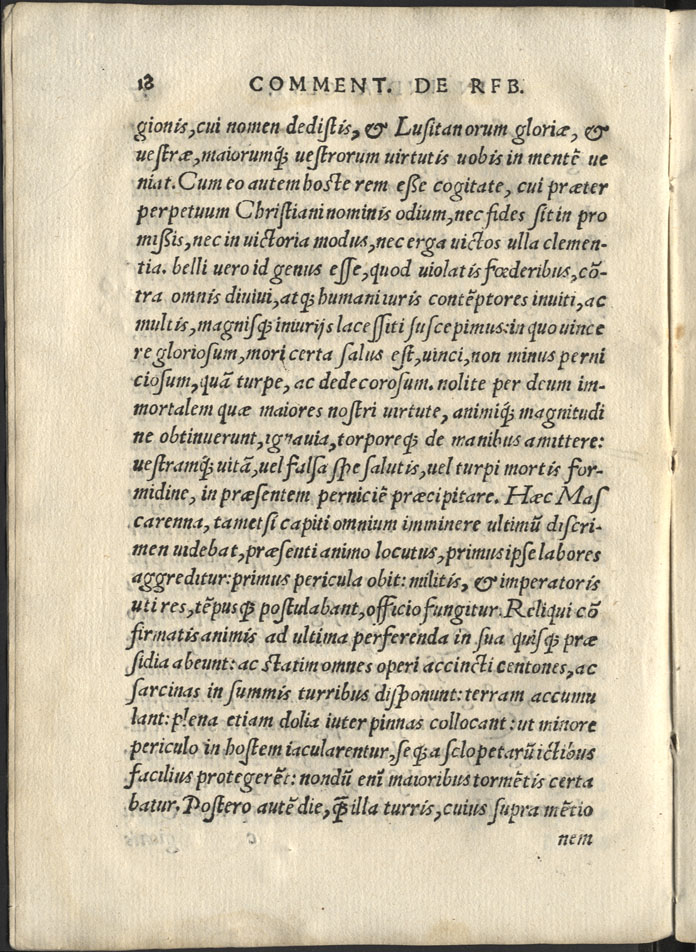 18 COMMENT. DE RFB.
gionis, cui nomen dedistis, & Lusitanorum gloriæ, &
uestræ, maiorumq́; uestrorum uirtutis uobis in mentē ue
niat. Cum eo autem hoste rem esse cogitate, cui præter
perpetuum Christiani nominis odium, nec fides sit in pro
missis, nec in uictoria modus, nec erga uictos ulla clemen-
tia. belli uero id genus esse, quod uiolatis fœderibus, cō-
tra omnis diuiui, atq; humani iuris contēptores inuiti, ac
multis, magnisq; iniurijs lacessiti suscepimus: in quo uince
re gloriosum, mori certa salus est, uinci, non minus perni
ciosum, quā turpe, ac dedecorosum. nolite per deum im-
mortalem quæ maiores nostri uirtute, animiq́; magnitudi
ne obtinuerunt, ignauia, torporeq; de manibus amittere:
uestramq́; uitā, uel falsa spe salutis, uel turpi mortis for-
midine, in præsentem perniciē præcipitare. Hæc Mas
carenna, tametsi capiti omnium imminere ultimū discri-
men uidebat, præsenti animo locutus, primus ipse labores
aggreditur: primus pericula obit: militis, & imperatoris
uti res, tēpusq; postulabant, officio fungitur. Reliqui cō
firmatis animis ad ultima perferenda in sua quisq; præ
sidia abeunt: ac statim omnes operi accincti centones, ac
sarcinas in summis turribus disponunt: terram accumu
lant: plena etiam dolia iuter pinnas collocant: ut minore
periculo in hostem iacularentur, se q; a sclopetarū ictibus
facilius protegerēt: nondū enī maioribus tormētis certa
batur. Postero autē die, q̄; illa turris, cuius supra mētio
nem